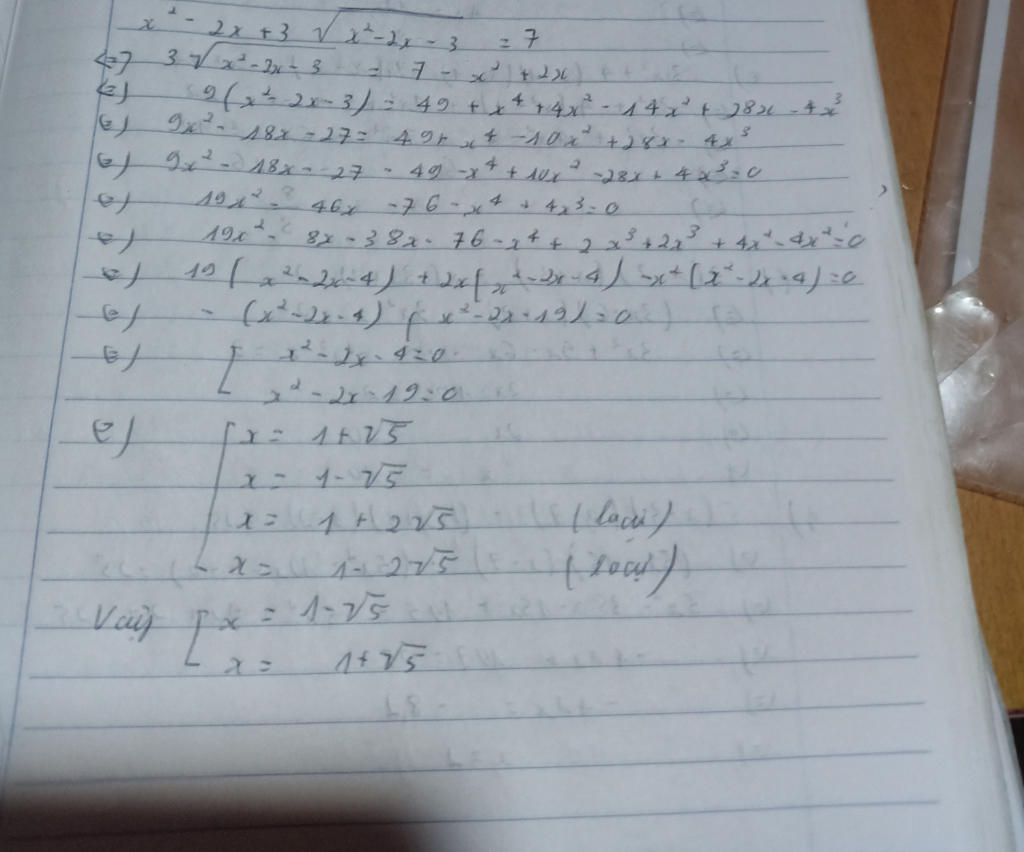 x² - 2x + 3 √(x² - 2x - 3) = 7
<=> 3 √(x² - 2x - 3) = 7 - x² + 2x
<=> 9(x² - 2x - 3) = 49 + x⁴ + 4x² - 14x² + 28x - 4x³
<=> 9x² - 18x - 27 = 49 + x⁴ - 10x² + 28x - 4x³
<=> 9x² - 18x - 27 - 49 - x⁴ + 10x² - 28x + 4x³ = 0
<=> 19x² - 46x - 76 - x⁴ + 4x³ = 0
<=> 19x² - 8x - 38x - 76 - x⁴ + 2x³ + 2x³ + 4x² - 4x² = 0
<=> 19(x² - 2x - 4) + 2x(x² - 2x - 4) - x²(x² - 2x - 4) = 0
<=> - (x² - 2x - 4) (x² - 2x - 19) = 0
<=> [ x² - 2x - 4 = 0
x² - 2x - 19 = 0
<=> [ x = 1 + √5
x = 1 - √5
x = 1 + 2√5 (loại)
x = 1 - 2√5 (loại)
Vậy [ x = 1 - √5
x = 1 + √5